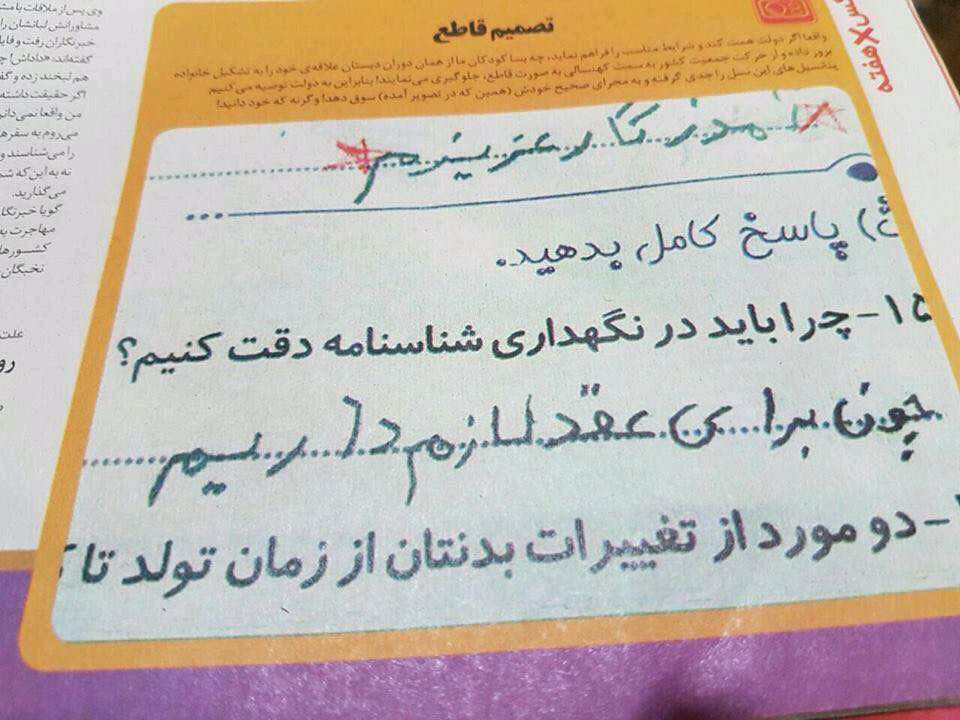 تصمیم قاطع
واقعا اگر دولت همت کند و شرایط مناسب را فراهم نماید، چه بسا کودکان ما از همان دوران دبستان علاقه‌ی خود را به تشکیل خانواده
بروز داده و از حرکت جمعیت کشور به سمت کهنسالی به صورت قاطع، جلوگیری می‌نمایند! بنابراین به دولت توصیه می‌کنیم
پتانسیل های این نسل را جدی گرفته و به مجرای صحیح خودش (همین که در تصویر آمده) سوق دهد! وگرنه که خود دانید!
هفته
ث) پاسخ کامل بدهید.
۱۵- چرا باید در نگهداری شناسنامه دقت کنیم؟
چون برای عقد لازم داریم
- دو مورد از تغییرات بدنتان از زمان تولد تا
وی پس از ملاقات با
مشاورانش لبانشان را
خبرنگاران رفت و
گفته‌اند: «داداش!
هم لبخند زده و
اگر حقیقت داشته
من واقعا نمی‌دانم
می‌روم به سفرها
را می‌شناسند و
نه به این‌که
می‌گذارید.
گویا خبرنگا
مهاجرت به
کشورها
نخبگان
علت
رو